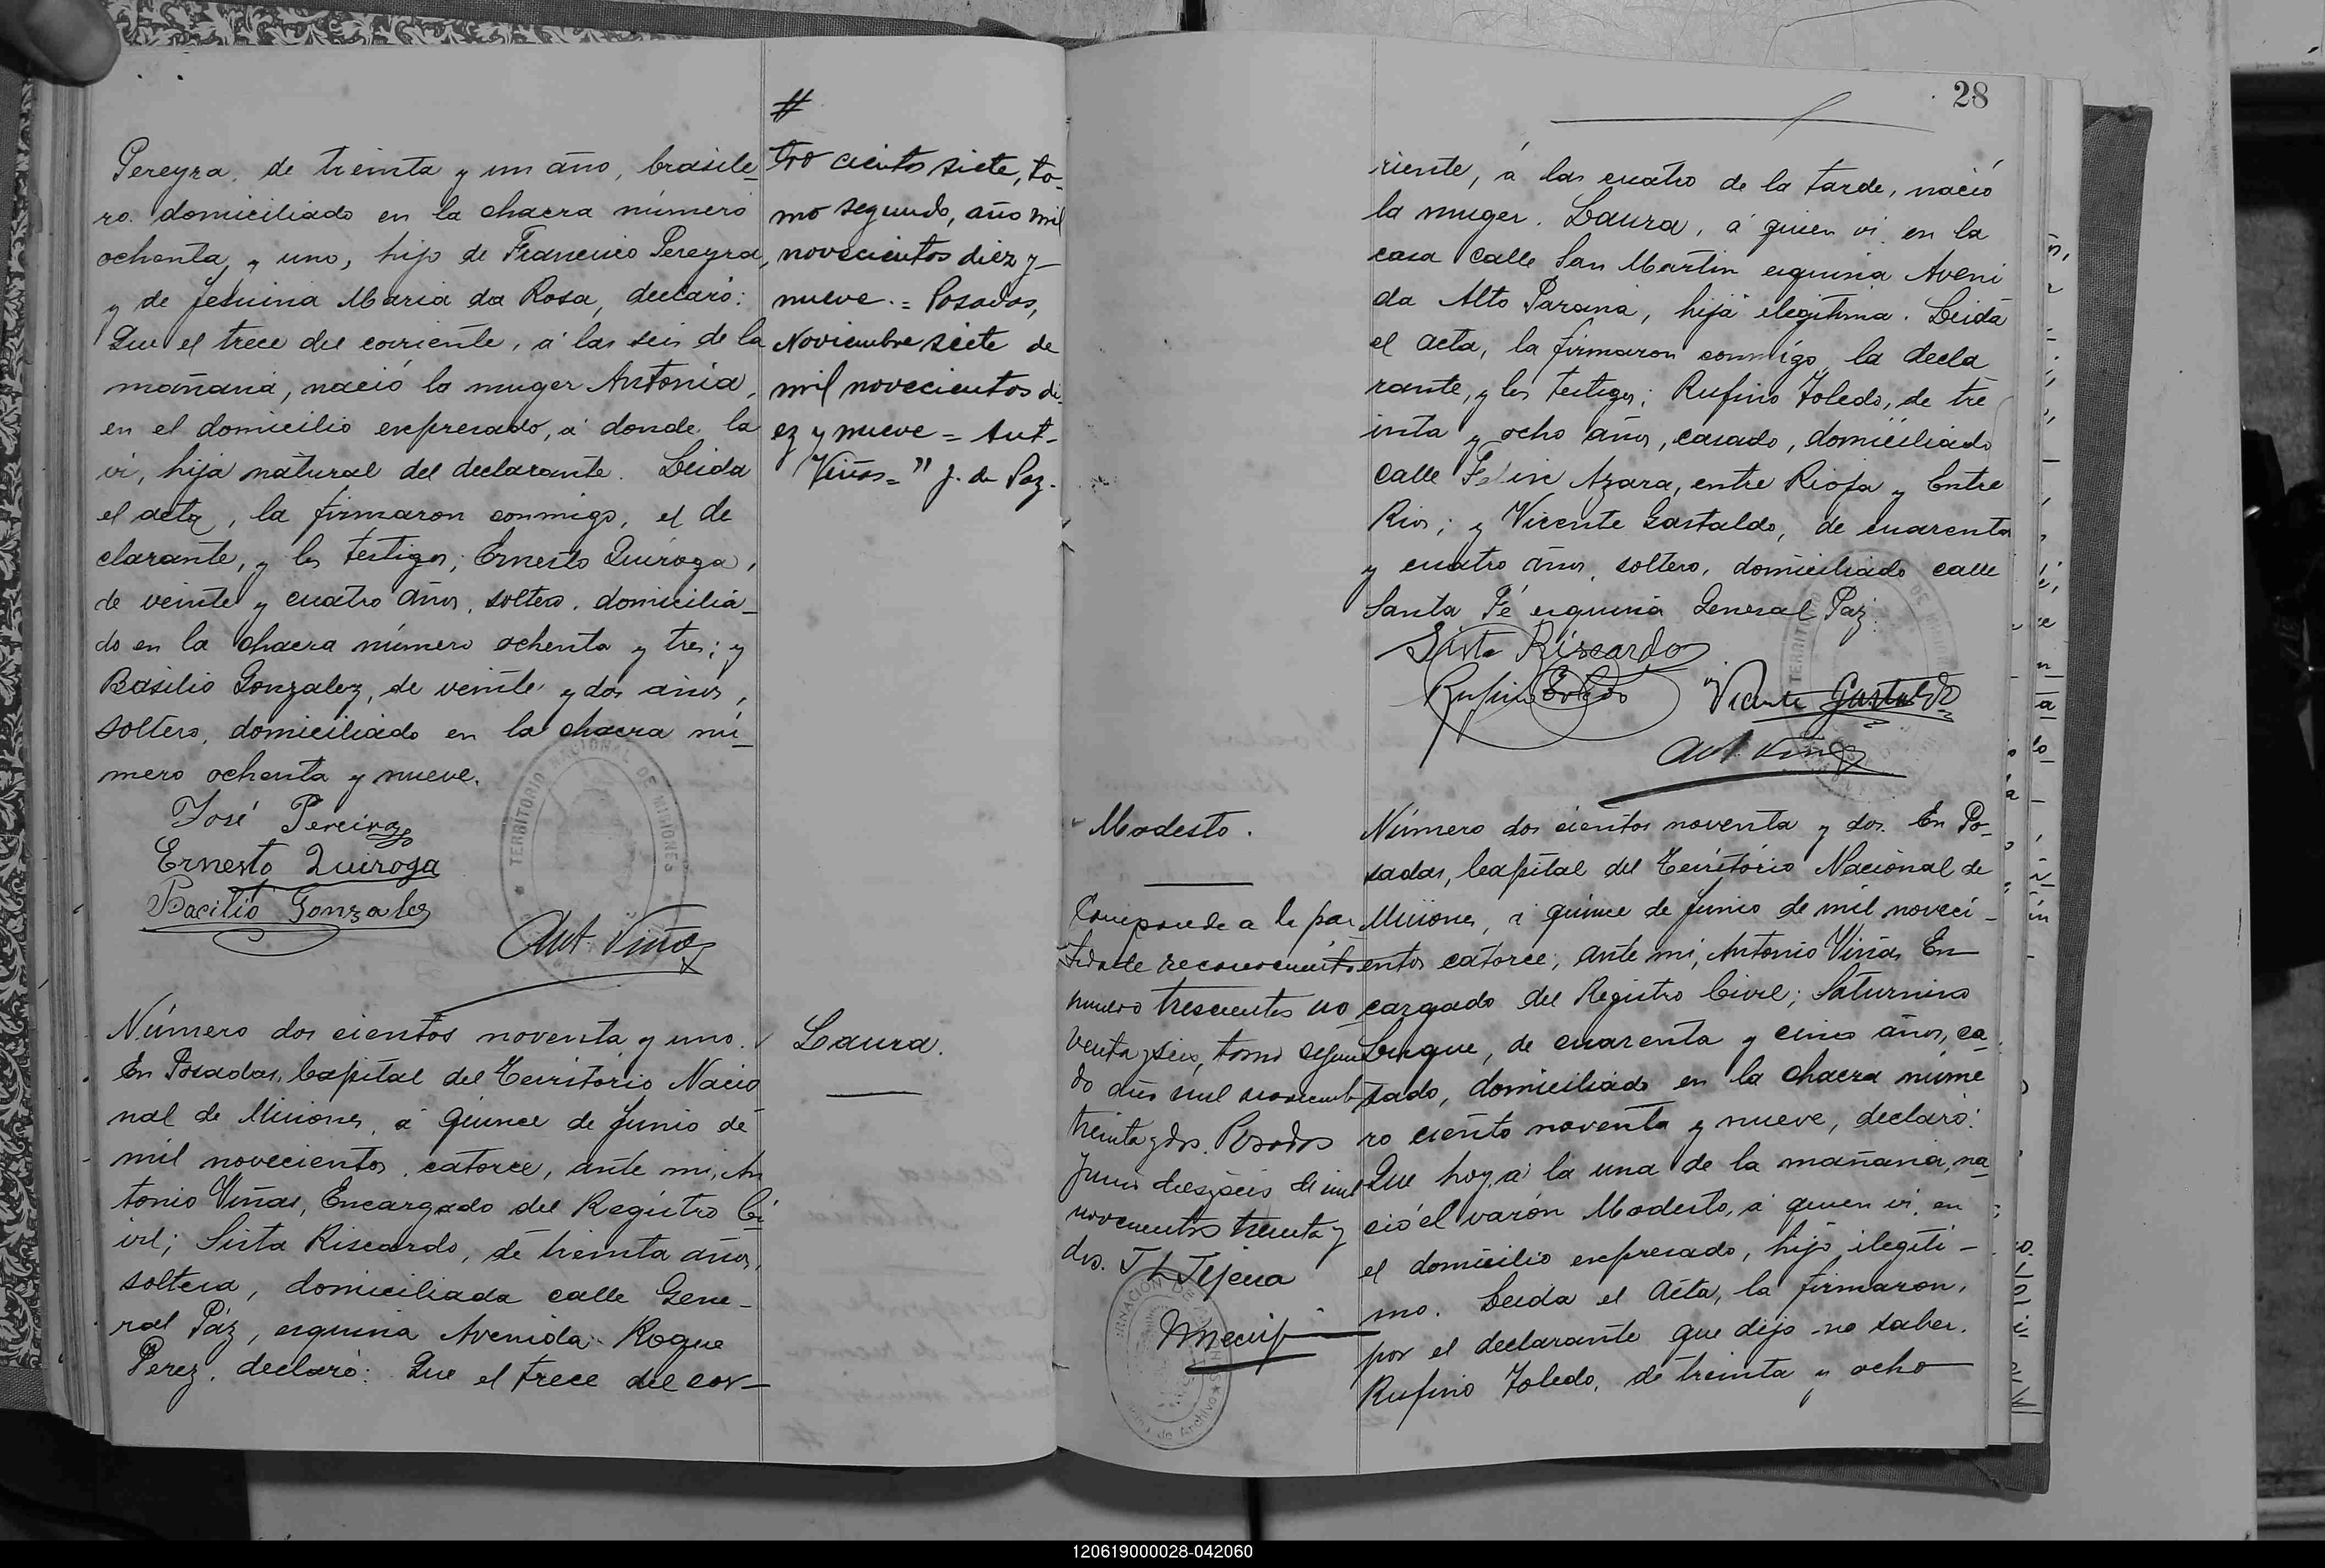 Pereyra, de treinta y un año, brasile-
ro. domiciliado en la chacra número
ochenta y uno, hijo de Francisco Pereyra,
y de Jesuina Maria da Rosa, declaró:
Que el trece del corriente, á las seis de la
mañana, nació la muger Antonia,
en el domicilio expresado, á donde la
vi, hija natural del declarante. Leida
el acta, la firmaron conmigo, el de
clarante, y los testigos; Ernesto Quiroga,
de veinte y cuatro años, soltero, domicilia-
do en la chacra número ochenta y tres; y
Basilio Gonzalez, de veinte y dos años,
soltero, domiciliado en la chacra nú-
mero ochenta y nueve.
José Pereira
Ernesto Quiroga
Bacilio Gonzales
Ant. Viñas
TERRITORIO NACIONAL DE MISIONES
Número dos cientos noventa y uno.
En Posadas, Capital del Territorio Nacio
nal de Misiones, á quince de Junio de
mil novecientos catorce, ante mi, An
tonio Viñas, Encargado del Registro Ci
vil; Sista Riscardo, de treinta años,
soltera, domiciliada calle Gene-
ral Paz, esquina Avenida Roque
Perez, declaró: Que el trece del cor-
#
tro cientos siete, to-
mo segundo, año mil
novecientos diez y-
nueve.= Posadas,
Noviembre siete de
mil novecientos di-
ez y nueve = Ant-
Viñas=" J. de Paz.
Laura.
28
riente, á las cuatro de la tarde, nació
la muger. Laura, á quien vi en la
casa calle San Martin esquina Aveni
da Alto Paraná, hija ilegitima. Leida
el acta, la firmaron conmigo la decla
rante, y los testigos; Rufino Toledo, de tre
inta y ocho años, casado, domiciliado
calle Felix Azara, entre Rioja y Entre
Rios; y Vicente Gastaldo, de cuarenta
y cuatro años, soltero, domiciliado calle
Santa Fé esquina General Paz.
Sista Riscardo
Rufino Toledo Vicente Gastaldo
Ant. Viñas
Modesto.
Comparende a la par
tida de reconocimiento
numero trescientos no
venta y seis, tomo segun
do año mil novecientos
treinta y dos. Posadas
Junio dieziseis de mil
novecientos treinta y
dos. Tejera
Número dos cientos noventa y dos. En Po-
sadas, Capital del Territorio Nacional de
Misiones, á quince de Junio de mil noveci-
entos catorce, ante mi, Antonio Viñas En
cargado del Registro Civil; Saturnino
Luque, de cuarenta y cinco años, ca
sado, domiciliado en la chacra núme
ro ciento noventa y nueve, declaró:
Que hoy á la una de la mañana, na
ció el varón Modesto, á quien vi en
el domicilio expresado, hijo ilegiti-
mo. Leida el Acta, la firmaron,
por el declarante que dijo no saber.
Rufino Toledo, de treinta y ocho
120619000028-042060